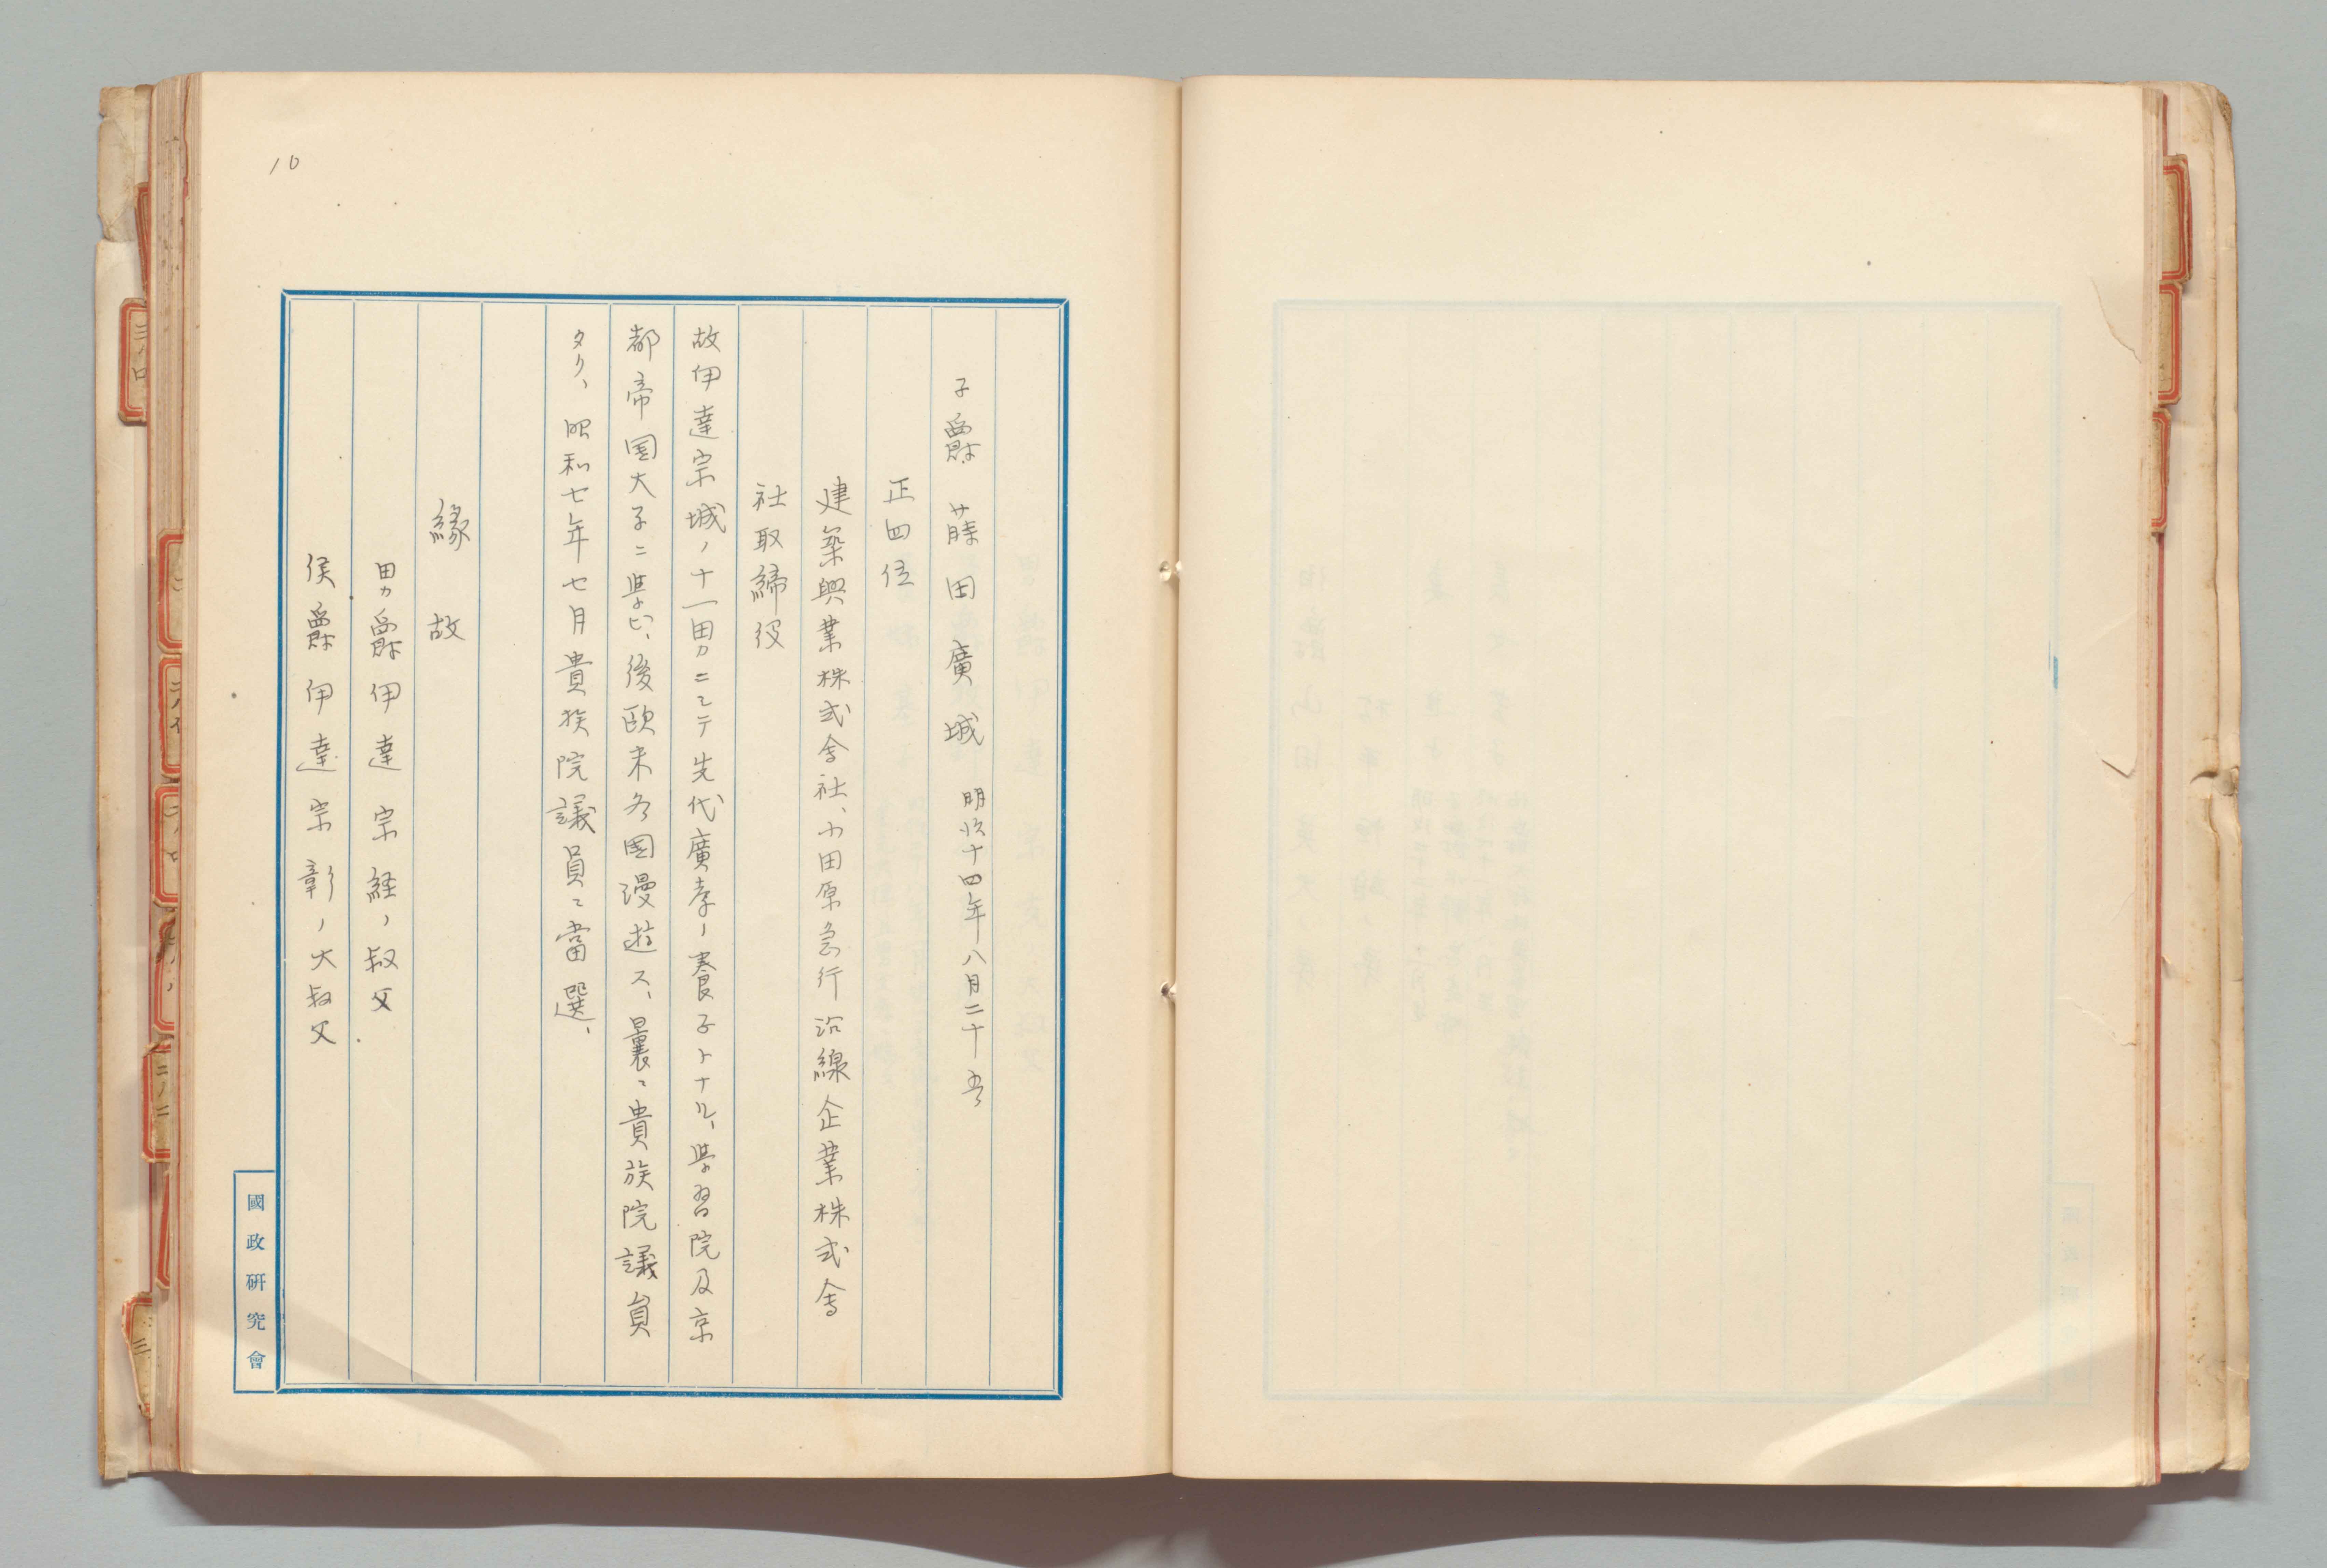 10
子爵 藤田廣城 明治十四年八月二十五
正四位
建築興業株式会社、小田原急行沿線企業株式会
社取締役
故伊達宗城ノ十一男ニシテ先代廣孝ノ養子トナル、学習院及京
都帝国大子ニ学ビ、後欧米各国漫遊ス、曩ニ貴族院議員
タリ、昭和七年七月貴族院議員ニ當選、
縁故
男爵伊達宗経ノ叔父
侯爵伊達宗彰ノ大叔父
國政研究會